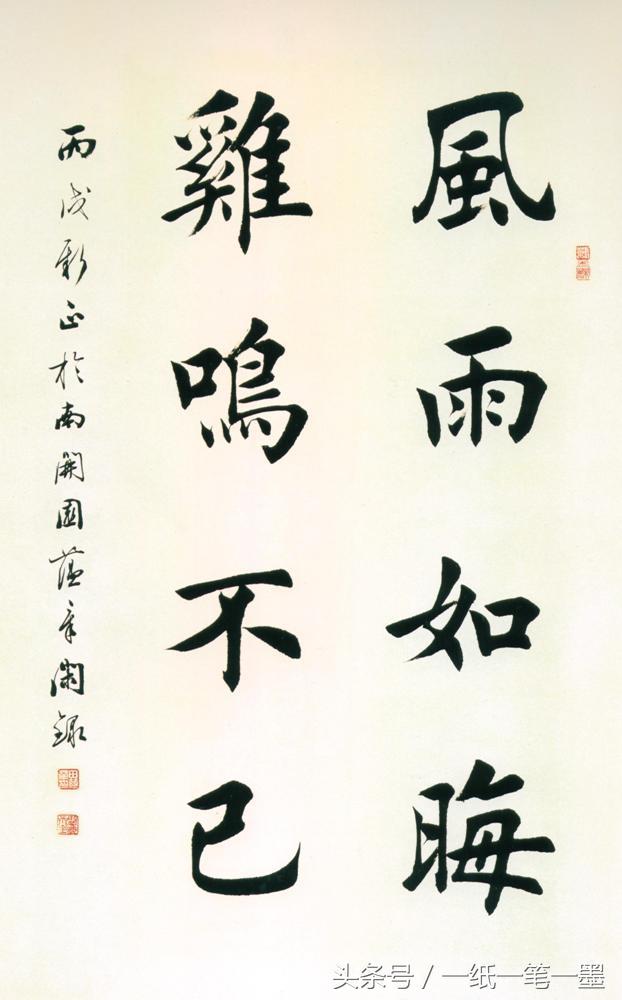 風雨如晦
雞鳴不已
丙戌新正於南開園蕰章錄
头条号 / 一纸一笔一墨